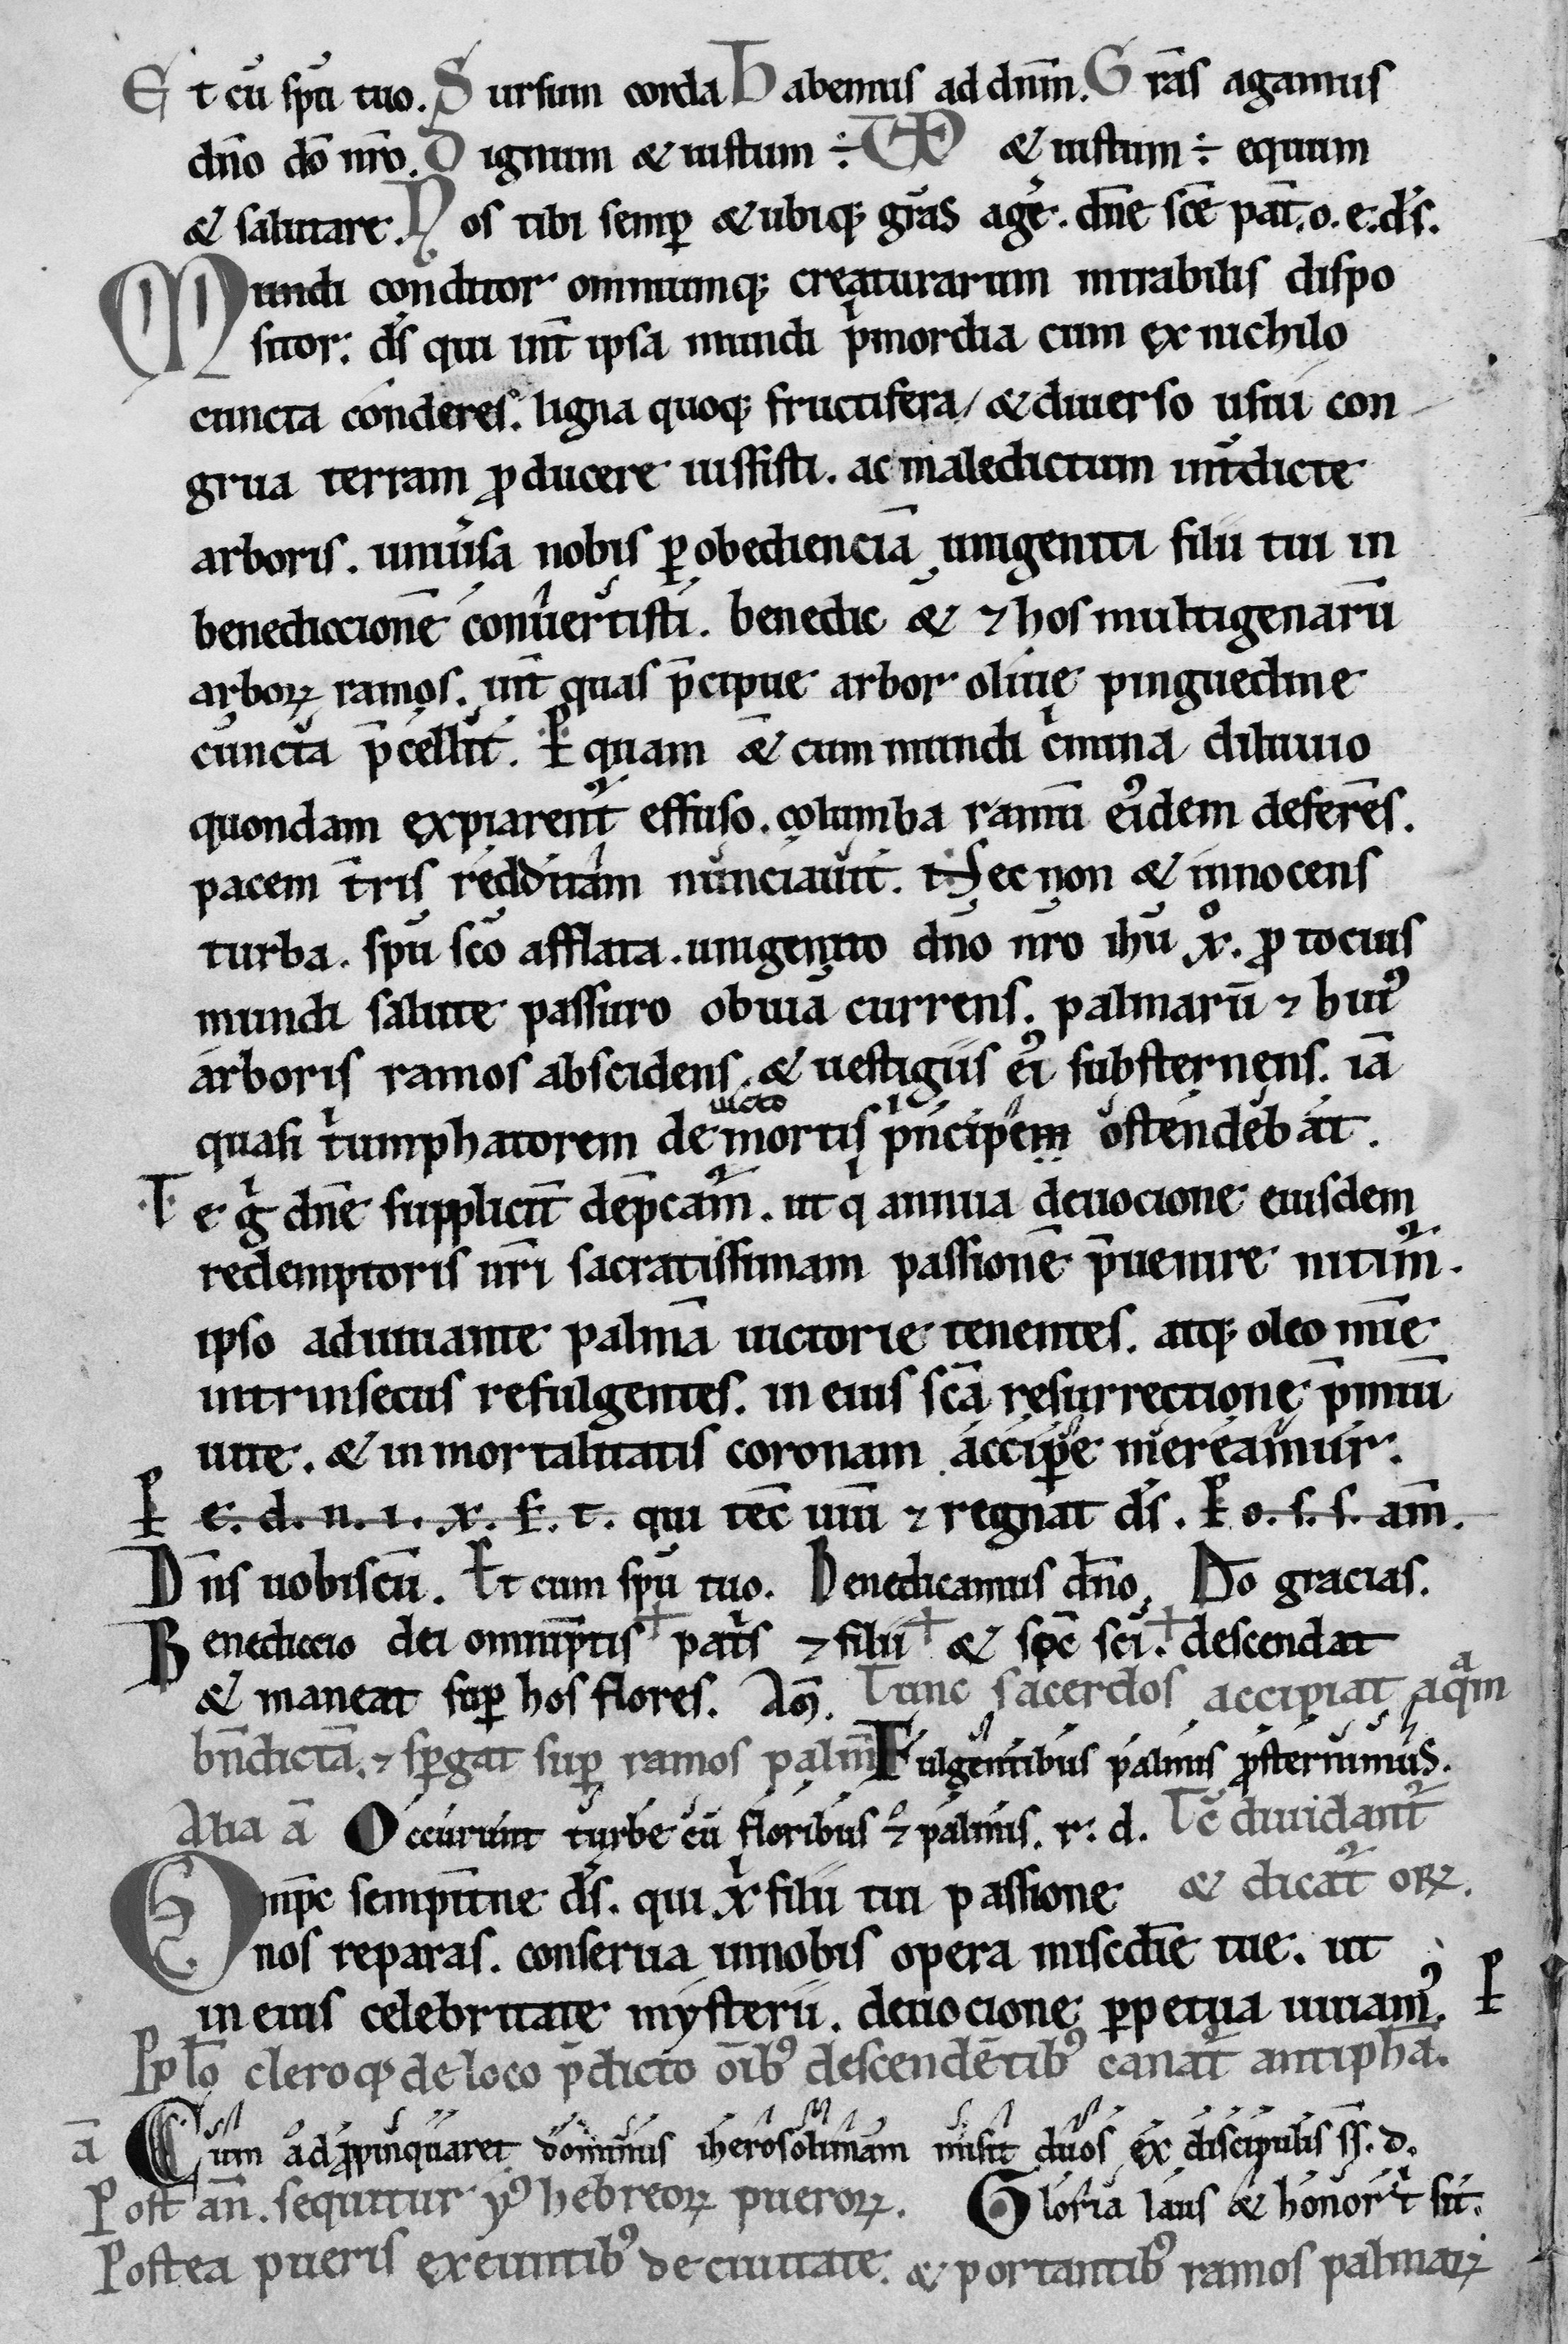 Et cū spū tuo. Sursum corda Habemus ad dnm̄. Grās agamus
dn̄o dō nr̄o. Dignum & iustum ÷ UE & iustum ÷ equum
& salutare. Nos tibi semꝑ & ubiqꝫ grās agē. dn̄e sc̄e pat̄. o. e. ds̄.
Mundi conditor omniumqꝫ creaturarum mirabilis dispo
sitor: ds̄ qui int̄ ipsa mundi pⁱmordia cum ex nichilo
cuncta conderes. ligna quoqꝫ fructifera / & diuerso usui con
grua terram ꝓducere iussisti. ac maledictum int̄dicte
arboris. uniūsa nobis ꝑ obedienciā unigeniti filii tui in
benediccionē conuertisti. benedic & ⁊ hos multigenarū
arboꝝ ramos. int̄ quas p̄cipue arbor oliue pinguedine
cuncta p̄cellit. Ꝑ quam & cum mundi cⁱmina diluuio
quondam expiarent᷑ effuso. columba ramū eiꝰdem deferēs.
pacem t̄ris redditam nunciauit. Nec non & innocens
turba. spū scō afflata. unigenito dn̄o nr̄o ihū x̊. ꝓ tocius
mundi salute passuro obuiā currens. palmarū ⁊ huiꝰ
arboris ramos abscidens. & uestigiis eiꝰ substernens. iā
quasi tⁱumphatorem de uicto mortis pⁱncipem ostendebat.
Te gͥ dn̄e supplicit̄ dep̄cam᷑. ut qͥ annua deuocione eiusdem
redemptoris nr̄i sacratissimam passionē p̄uenire nitim᷑.
ipso adiuuante palmā uictorie tenentes. atqꝫ oleo mīe
intrinsecus refulgentes. in eius scā resurrectione p̄miū
uite. & inmortalitatis coronam accipꝑe mereamur.
Ꝑ e. d. n. i. x. f. t. qui tec̄ uiū ⁊ regnat ds̄. Ꝑ o. s. s. am̄.
Dn̄s uobiscū. Et cum spū tuo. Benedicamus dn̄o. Dō gracias.
Benediccio dei omnip̄tis patⁱs ⁊ filii & spc̄ sci. descendat
& maneat suꝑ hos flores. Am̄. Tunc sacerdos accipiat aqᵃm
bn̄dictā. ⁊ spgat suꝑ ramos palm̄ Fulgentibus palmis ꝓsternimus.
Alia ā Occurunt turbe cū floribus ⁊ palmis. r: d. Tc̄ diuidant᷑
Omp̄c sempit̄ne ds̄. qui xⁱ filii tui passione & dicat᷑ oꝝ.
nos reparas. conserua innobis opera miscdīe tue. ut
in eius celebritate mysterii. deuocione ꝑpetua uiuamꝰ. Ꝑ
Pplō cleroqꝫ de loco p̄dicto oībꝰ descendētibꝰ canat᷑ antiphā.
ā Cum adꝓpinquaret dominus iherosolimam misit duos ex discipulis ss. d.
Post an̄. sequitur yꝰ hebreoꝝ pueroꝝ. Gloria laus & honor tⁱ sit.
Postea pueris exeuntibꝰ de ciuitate. & portantibꝰ ramos palmaꝝ